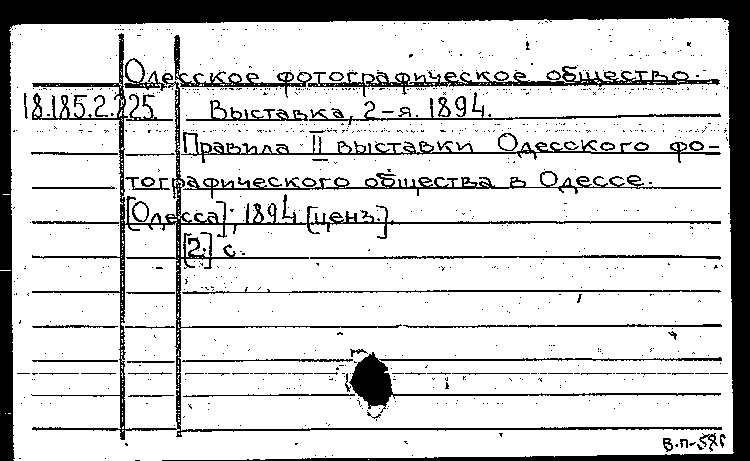 Одесское фотографическое общество.
18.185.2.225. Выставка, 2-я. 1894.
Правила II выставки Одесского фо-
тографического общества в Одессе.
[Одесса], 1894 [ценз.].
[2] с.
В.п-